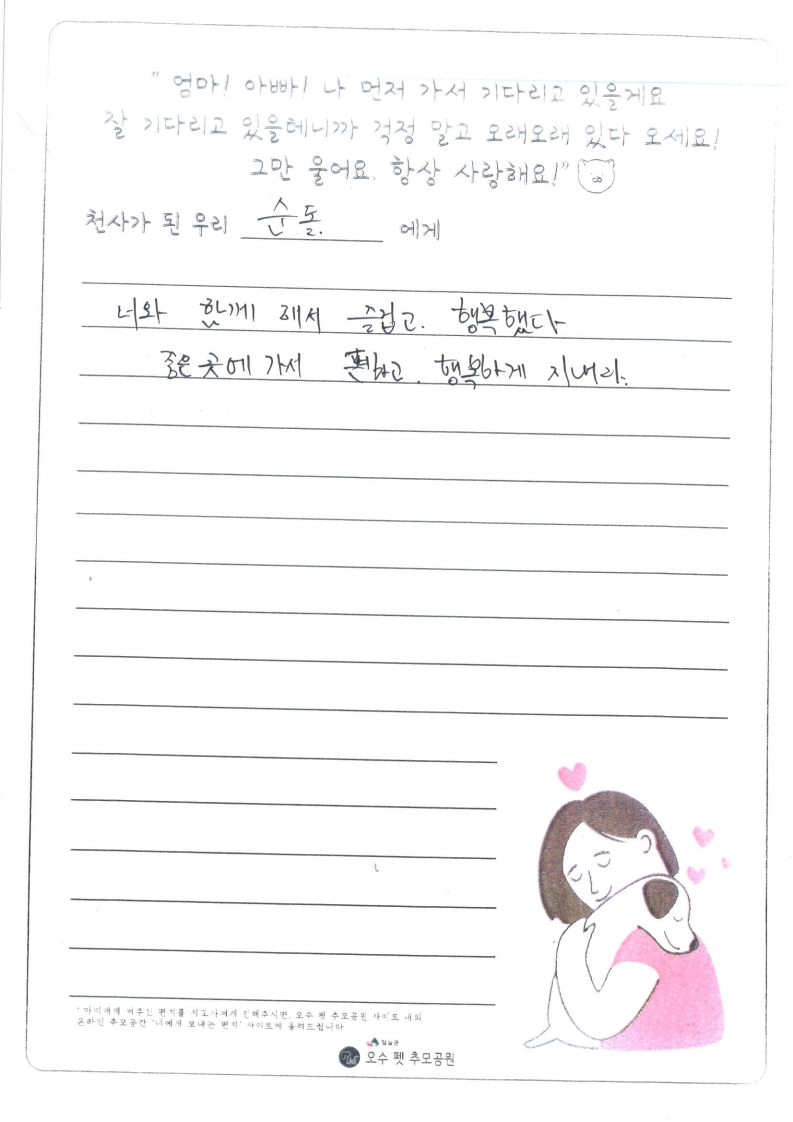 " 엄마! 아빠! 나 먼저 가서 기다리고 있을게요
잘 기다리고 있을테니까 걱정 말고 오래오래 있다 오세요!
그만 울어요. 항상 사랑해요!"
천사가 된 우리 순돌. 에게
너와 함께 해서 즐겁고. 행복했다
좋은 곳에 가서 편하고. 행복하게 지내라.
* 아이에게 써주신 편지를 지도사에게 전해주시면, 오수 펫 추모공원 사이트 내의
온라인 추모공간 '너에게 보내는 편지' 사이트에 올려드립니다
임실군
오수 펫 추모공원